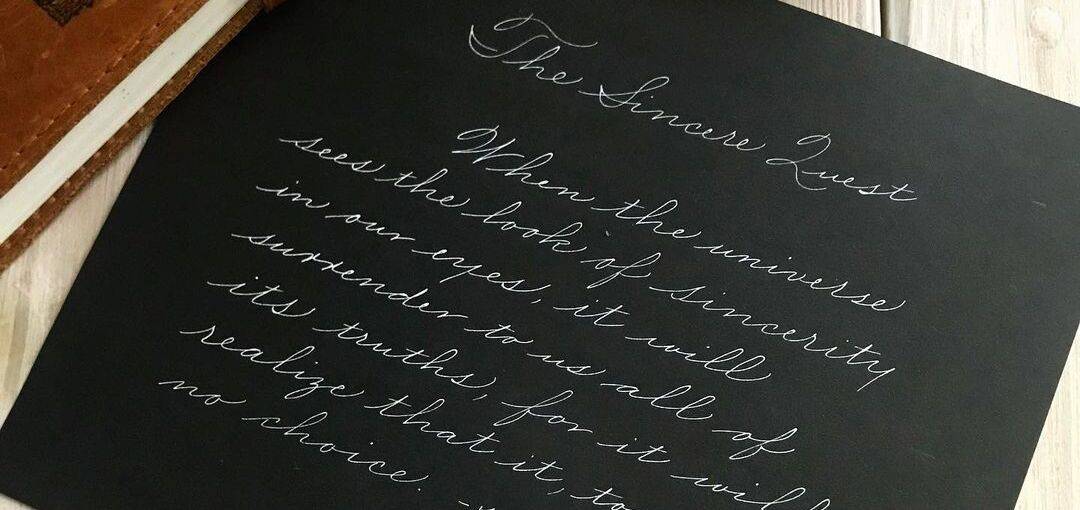 The Sincere Quest
When the universe
sees the look of sincerity
in our eyes, it will
surrender to us all of
its truths, for it will
realize that it, to
no choice.